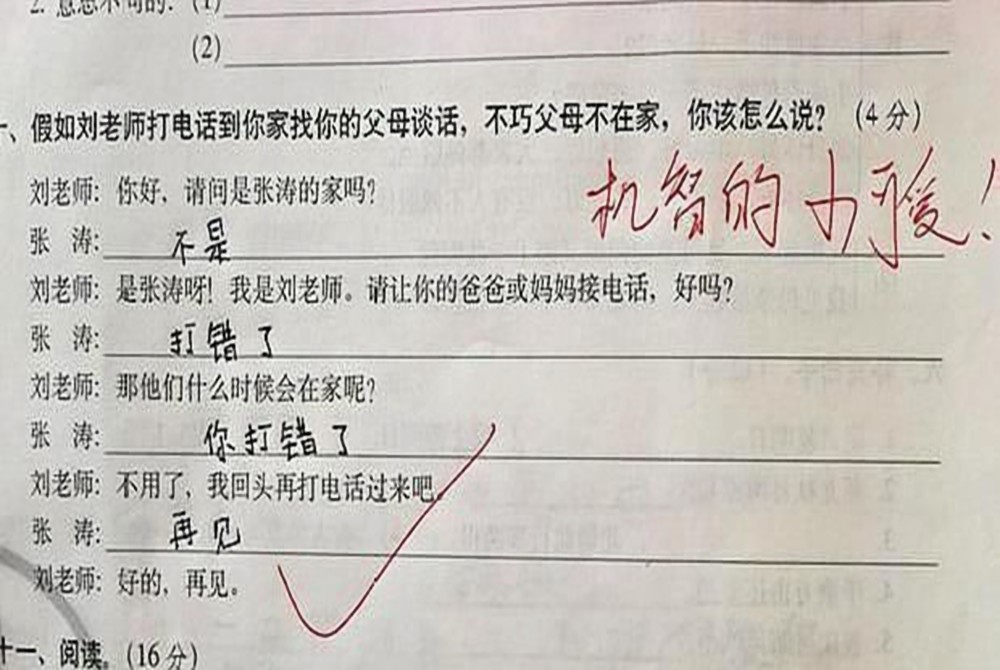 2. 意想不到的：(1)
(2)
一、假如刘老师打电话到你家找你的父母谈话，不巧父母不在家，你该怎么说？（4 分）
机智的小可爱！
刘老师：你好，请问是张涛的家吗？
张　涛：不是
刘老师：是张涛呀！我是刘老师。请让你的爸爸或妈妈接电话，好吗？
张　涛：打错了
刘老师：那他们什么时候会在家呢？
张　涛：你打错了
刘老师：不用了，我回头再打电话过来吧。
张　涛：再见
刘老师：好的，再见。
十一、阅读。（16 分）